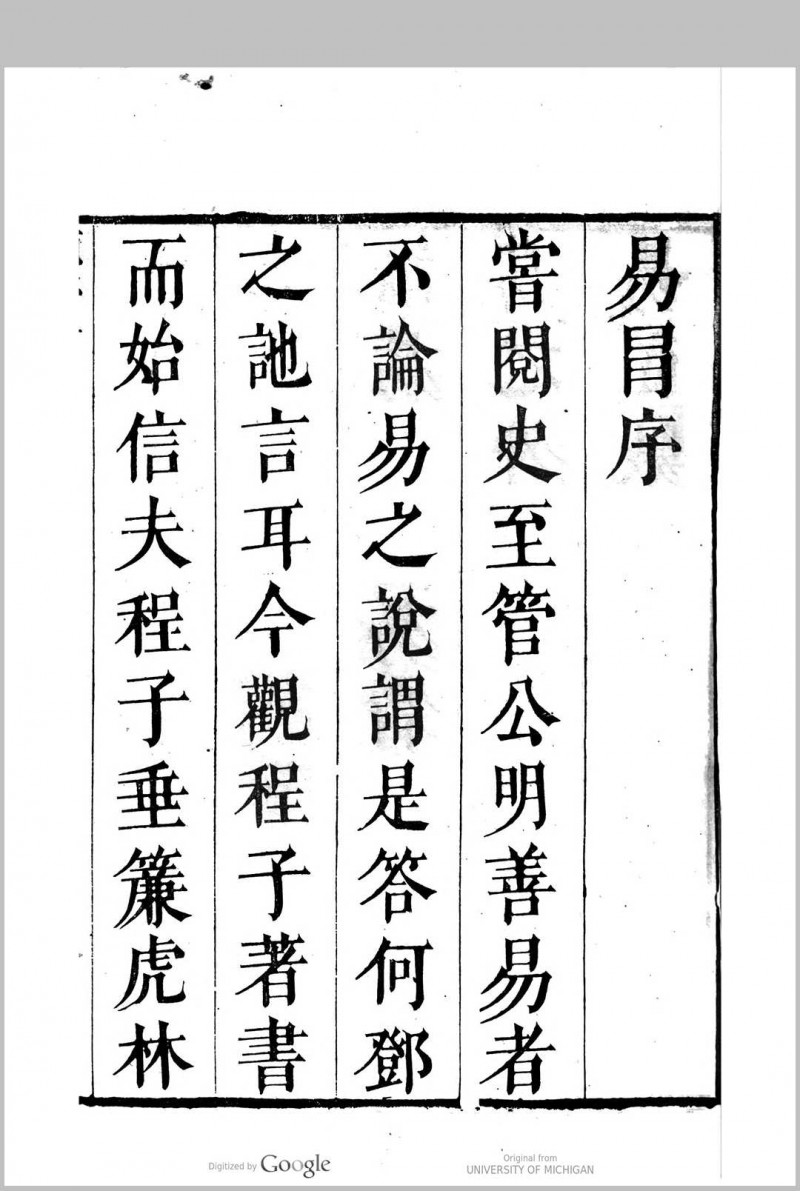 易冒序
嘗閱史至管公明善易者
不論易之說謂是答何鄧
之訑言耳今觀程子著書
而始信夫程子垂簾虎林
Digitized by Google
Original from
UNIVERSITY OF MICHIGAN